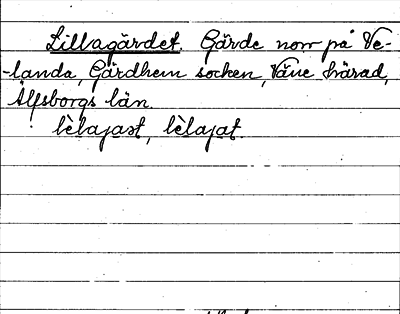 Lillagärdet. Gärde norr på Ve-
-landa, Gärdhem socken, Väne härad,
Älfsborgs län.
lèlajäst, lèlajat.